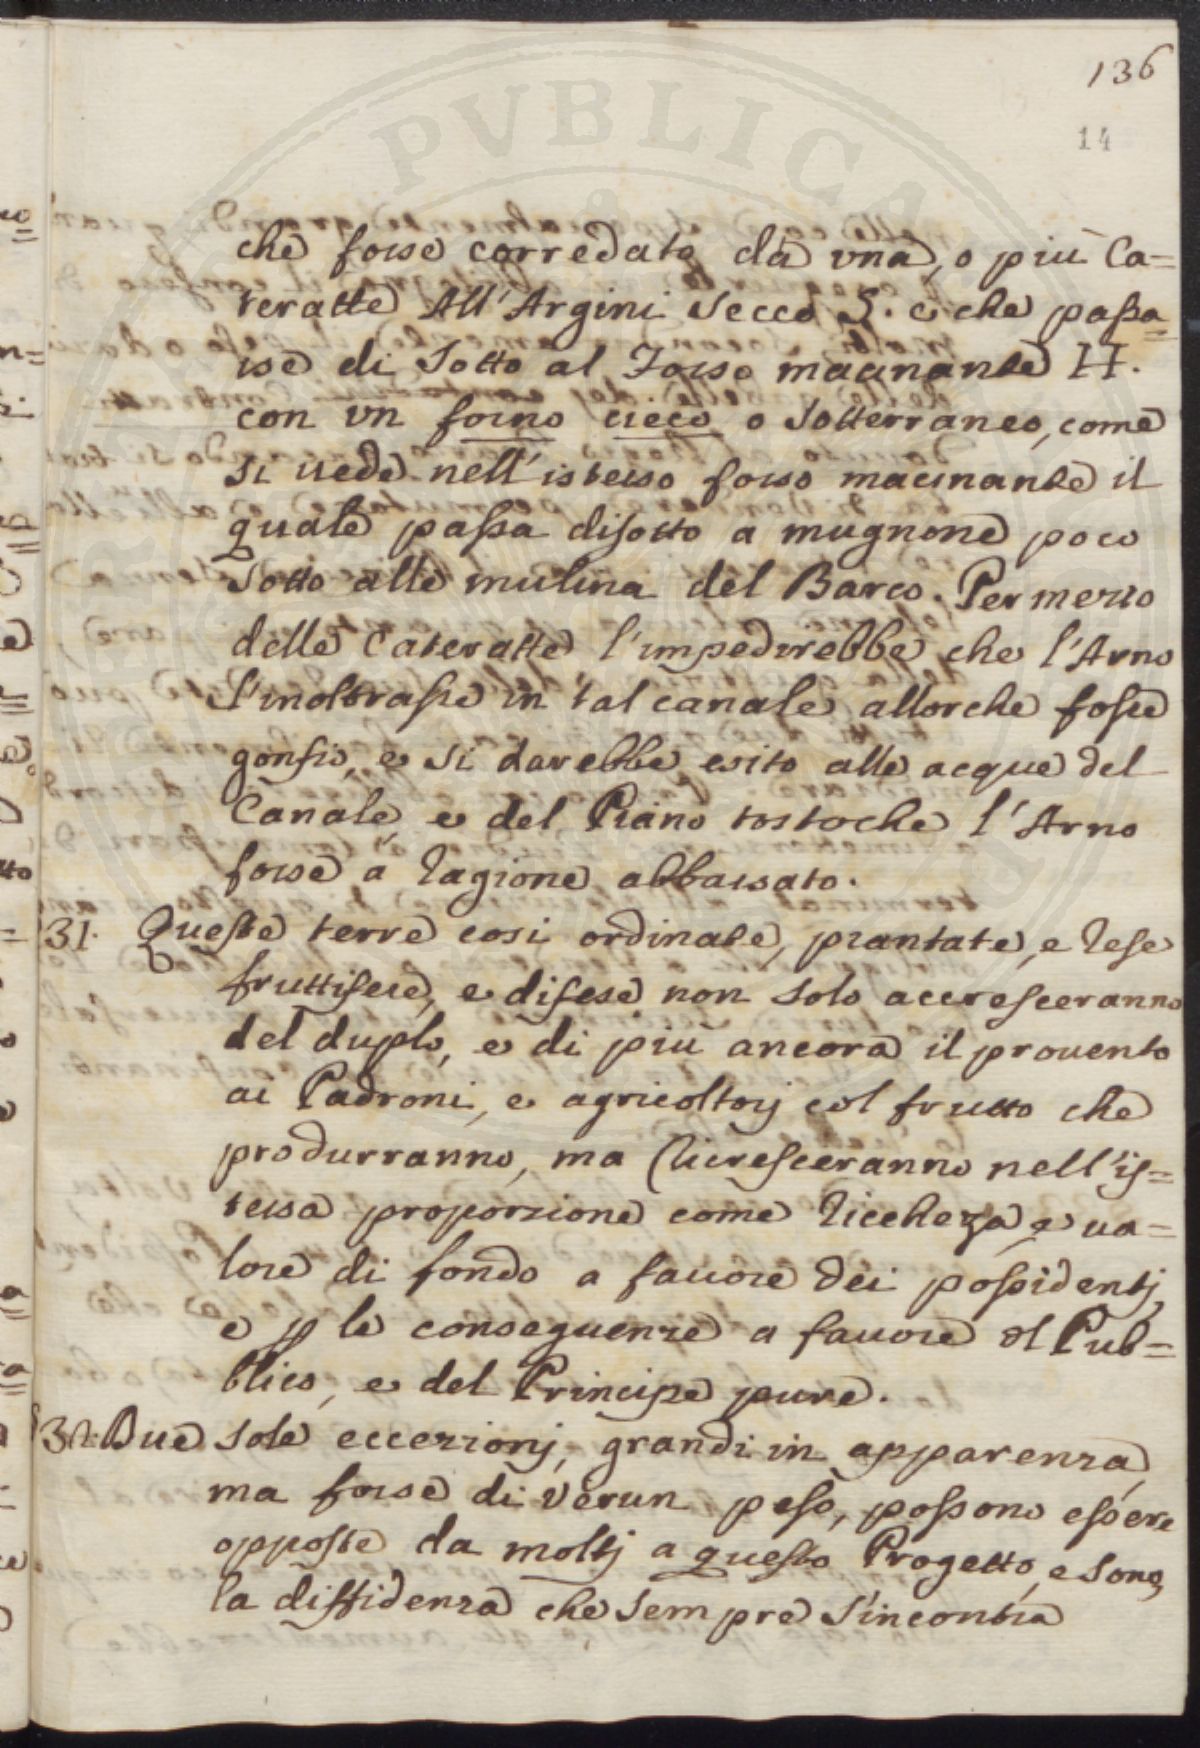 136
14
che fosse corredato da una, o più Ca=
teratte All'Argini Secco S. e che passa=
sse di Sotto al Fosso macinante H.
con un fosso cieco o Sotterraneo, come
si vede nell'istesso fosso macinante il
quale passa disotto a mugnone poco
Sotto alle mulina del Barco. Per mezzo
delle Cateratte s'impedirebbe che l'Arno
s'inoltrasse in tal canale allorche fosse
gonfio, e si darebbe esito alle acque del
Canale, e del Piano tostoche l'Arno
fosse a ragione abbassato.
31. Queste terre cosi ordinate, piantate, e rese
fruttifere, e difese non solo accresceranno
del duplo, e di più ancora il provento
ai Padroni, e agricoltorj col frutto che
produrranno, ma ricresceranno nell'is=
tessa proporzione come ricchezza, e va=
lore di fondo a favore dei possidentj,
e p le conseguenze a favore del Pub=
blico, e del Principe pure.
32. Due sole eccezionj, grandi in apparenza,
ma forse di verun peso, possono essere
opposte da moltj a questo Progetto, e sono,
la diffidenza che sempre s'incontra